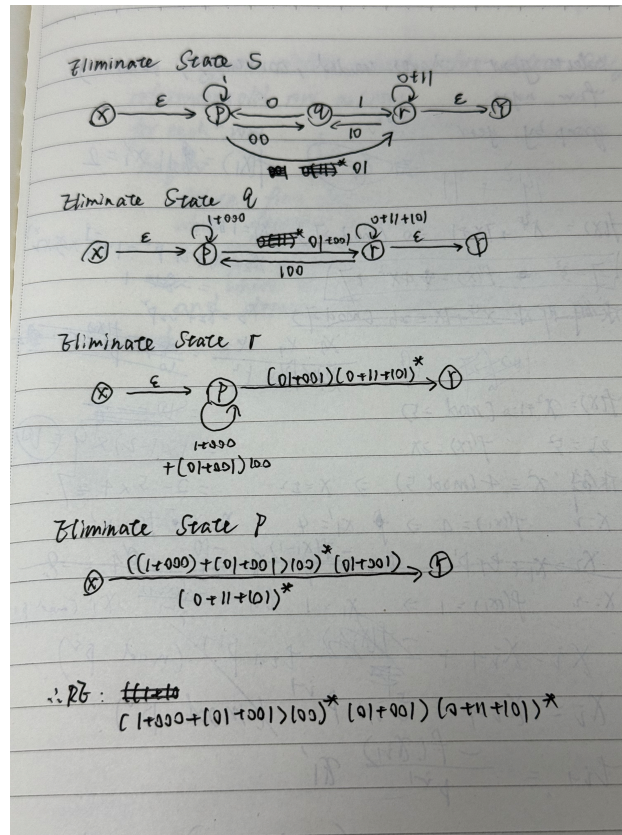 Eliminate State S
1
0+11
X ε P 0 q 1 r ε Y
00 10
01
Eliminate State q
1+000 0+11+101
X ε P 01+001 r ε Y
100
Eliminate State r
X ε P (01+001)(0+11+101)* Y
1+000
+(01+001)100
Eliminate State P
((1+000)+(01+001)100)*(01+001)
X Y
(0+11+101)*
∴RE:
(1+000+(01+001)100)*(01+001)(0+11+101)*